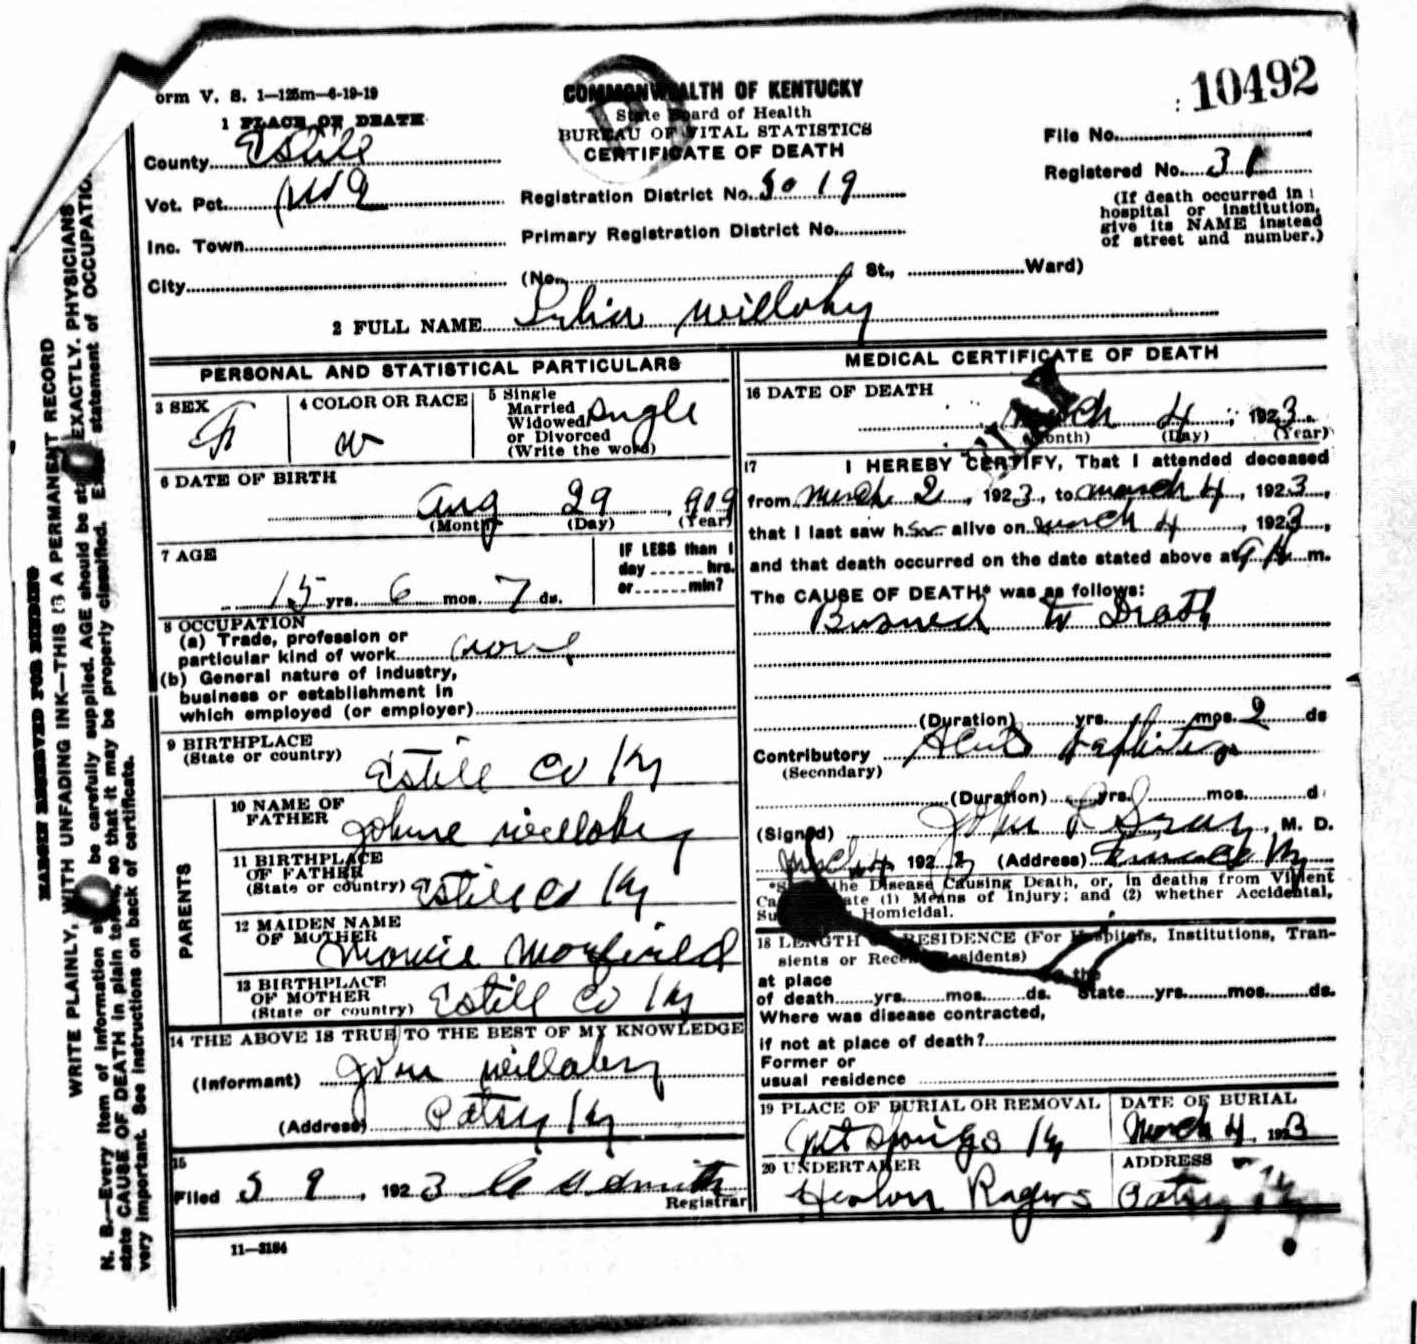 orm V. S. 1—125m—6-19-19
10492
COMMONWEALTH OF KENTUCKY
State Board of Health
BUREAU OF VITAL STATISTICS
CERTIFICATE OF DEATH
1 PLACE OF DEATH
County Estill
Vot. Pct.
Inc. Town
City
File No.
Registered No. 31
Registration District No. 5019
Primary Registration District No.
(No. St., Ward)
(If death occurred in
hospital or institution,
give its NAME instead
of street and number.)
2 FULL NAME willoby
PERSONAL AND STATISTICAL PARTICULARS
3 SEX F
4 COLOR OR RACE w
5 Single
Married
Widowed
or Divorced
(Write the word)
Single
6 DATE OF BIRTH
Aug 29, 909
(Month) (Day) (Year)
7 AGE
15 yrs. 6 mos. 7 ds.
IF LESS than 1
day ...... hrs.
or ...... min?
8 OCCUPATION
(a) Trade, profession or
particular kind of work none
(b) General nature of industry,
business or establishment in
which employed (or employer)
9 BIRTHPLACE
(State or country) Estill Co Ky
PARENTS
10 NAME OF
FATHER Johnie willoby
11 BIRTHPLACE
OF FATHER
(State or country) Estill Co Ky
12 MAIDEN NAME
OF MOTHER
13 BIRTHPLACE
OF MOTHER
(State or country) Estill Co Ky
14 THE ABOVE IS TRUE TO THE BEST OF MY KNOWLEDGE
(Informant) John willoby
(Address) Patsy Ky
15
Filed 5 9, 1923 Smith
Registrar
11—3184
MEDICAL CERTIFICATE OF DEATH
16 DATE OF DEATH
March 4, 1923
(Month) (Day) (Year)
17 I HEREBY CERTIFY, That I attended deceased
from March 2, 1923, to March 4, 1923,
that I last saw her alive on March 4, 1923,
and that death occurred on the date stated above at 9 A m.
The CAUSE OF DEATH* was as follows:
Burned to Death
(Duration) yrs. mos. 2 ds
Contributory
(Secondary)
(Duration) yrs. mos. d
(Signed) John L Gray, M. D.
March 4 1923 (Address) Ky
*State the Disease Causing Death, or, in deaths from Violent
Causes, state (1) Means of Injury; and (2) whether Accidental,
Suicidal or Homicidal.
18 LENGTH OF RESIDENCE (For Hospitals, Institutions, Tran-
sients or Recent Residents)
at place In the
of death yrs. mos. ds. State yrs. mos. ds.
Where was disease contracted,
if not at place of death?
Former or
usual residence
19 PLACE OF BURIAL OR REMOVAL
Springs Ky
DATE OF BURIAL
March 4, 1923
20 UNDERTAKER
Rogers
ADDRESS
Patsy Ky
MARGIN RESERVED FOR BINDING
WRITE PLAINLY, WITH UNFADING INK—THIS IS A PERMANENT RECORD
N. B.—Every item of information should be carefully supplied. AGE should be stated EXACTLY. PHYSICIANS
state CAUSE OF DEATH in plain terms, so that it may be properly classified. Exact statement of OCCUPATIO
very important. See instructions on back of certificate.